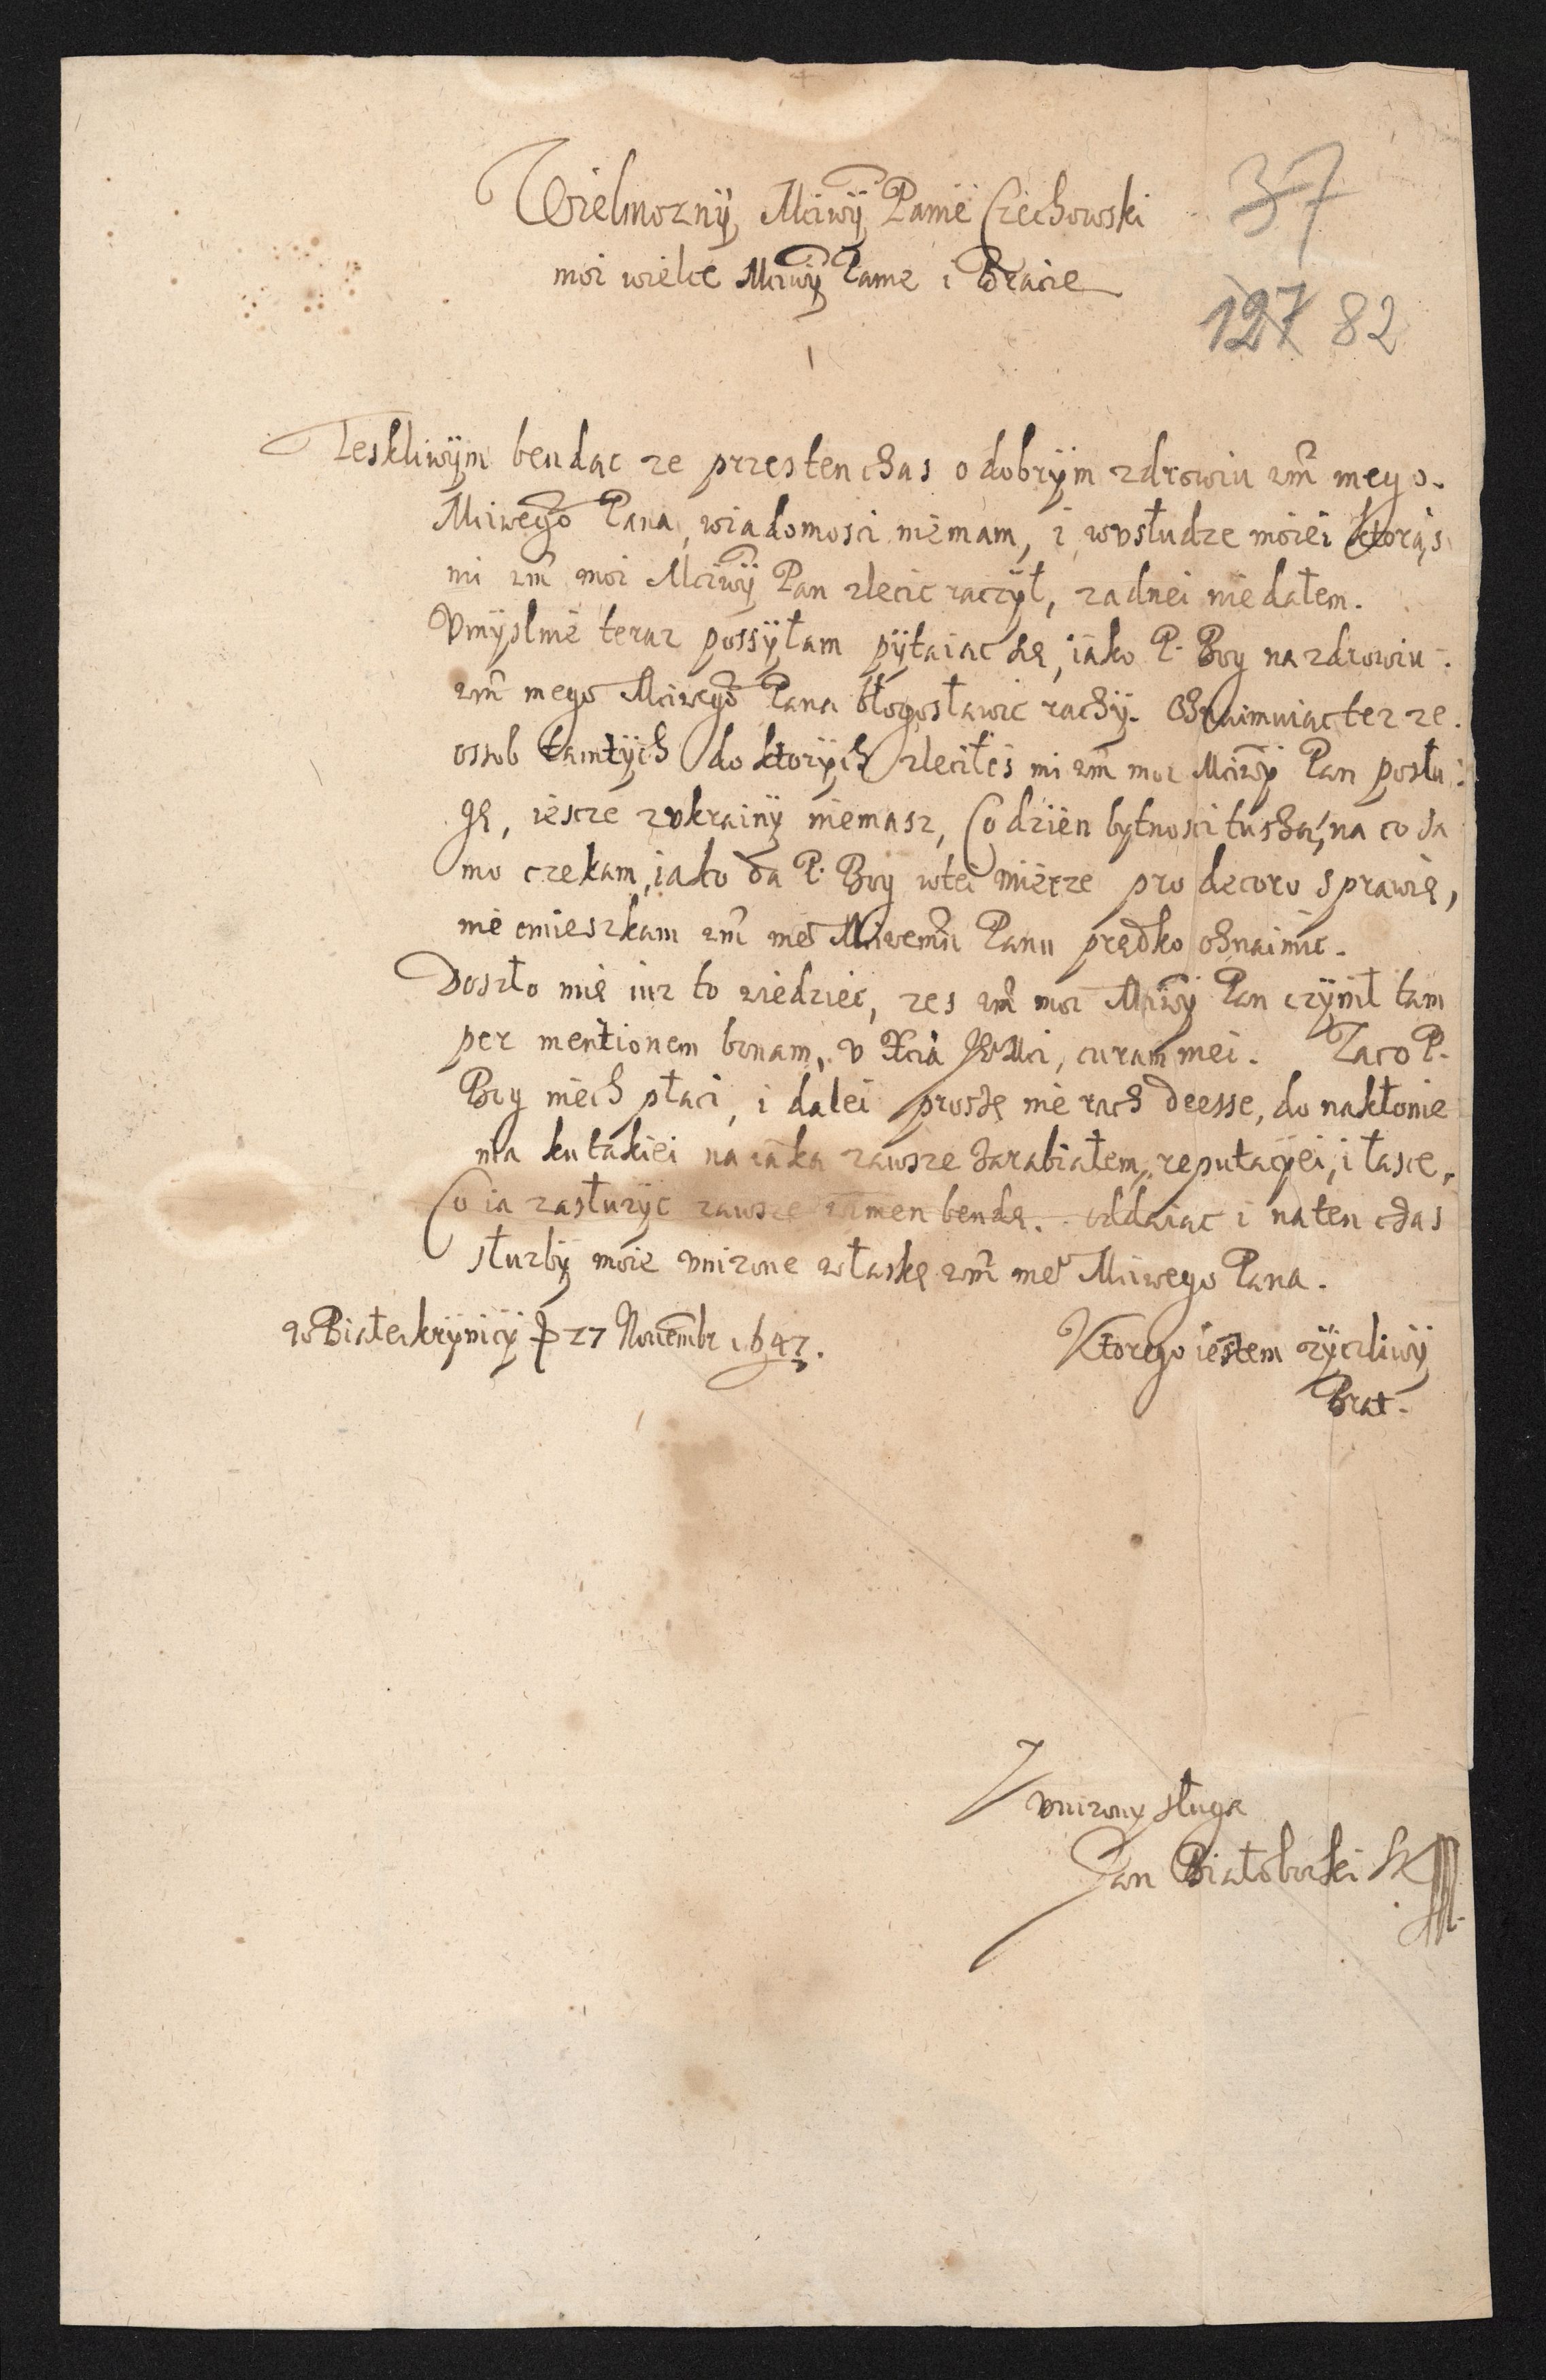 Wielmozny Mciwÿ Panie Czechowski
37
moi wielce Mciwÿ Panie i Bracie
127 82
Teskliwÿm bendac ze przes ten chas o dobrÿm zdrowiu wm̃ mego
Mciwego Pana, wiadomosci niemam, i wvsłudze moiei ktorąs
mi wm̃ moi Mciwÿ Pan zlecic raczÿł, zadnei niedałem.
Vmÿslnie teraz possÿłam pÿtaiac sie, iako P. Bog na zdrowiu
wm̃ mego Mciwego Pana błogosławic rachÿ. Oznaimuiac tez ze
ossob tamtÿch do ktorÿch zleciłes mi wm̃ moi Mciwÿ Pan posłu
gę, iescze zvkrainÿ niemasz, Co dzien bytnosci tuszą, na co sa
mo czekam, iako da P. Bog wtei mierze pro decoro sprawię,
nie omieszkam wm̃ me° Mciwemu Panu prędko oznaimic.
Doszło mię iuz to wiedziec, zes wm̃ moi Mciwÿ Pan czÿnił tam
per mentionem bonam, v Xcia Je°Mci, curam mei. Zaco P.
Bog niech płaci, i dalei proszę nie rach deesse, do nakłonie
nia ku takiei na iaka zawsze zarabiałem, reputacÿei, i łasce,
Co ia zasłuzÿc zawsze bendę. oddaiac i naten chas
słuzbÿ moie vnizone właskę wm̃ me° Mciwego Pana.
w Białeikrÿnicÿ D 27 Nouembr 1647.
Ktorego iestem zÿczliwÿ
Brat.
I vnizony sługa
Jan Białoborski